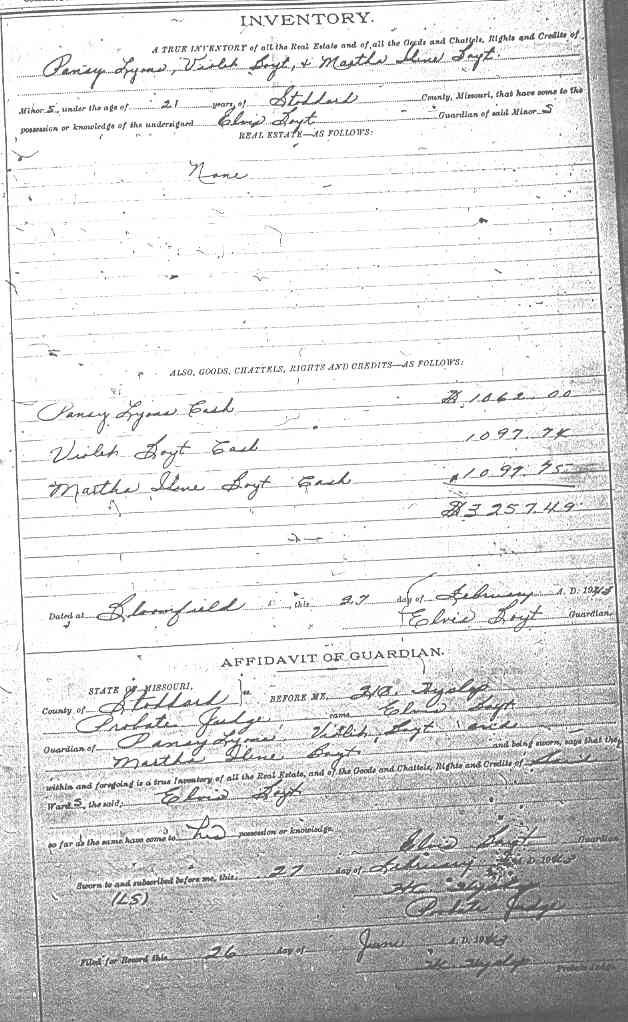 INVENTORY.
A TRUE INVENTORY of all the Real Estate and of all the Goods and Chattels, Rights and Credits of
Pansy Lyons, Violet Boyt, & Martha Ilene Boyt.
Minor S, under the age of 21 years, of Stoddard County, Missouri, that have come to the
possession or knowledge of the undersigned Elvis Boyt Guardian of said Minor S
REAL ESTATE—AS FOLLOWS:
None
ALSO, GOODS, CHATTELS, RIGHTS AND CREDITS—AS FOLLOWS:
Pansy Lyons Cash $1062.00
Violet Boyt Cash 1097.74
Martha Ilene Boyt Cash 1097.75
$3257.49
Dated at Bloomfield, this 27 day of February A. D. 19
Elvis Boyt Guardian.
AFFIDAVIT OF GUARDIAN.
STATE OF MISSOURI,
County of Stoddard ss. BEFORE ME, Hyslop
Probate Judge came Elvis Boyt
Guardian of Pansy Lyons, Violet Boyt and
Martha Ilene Boyt and being sworn, says that the
within and foregoing is a true Inventory of all the Real Estate, and of the Goods and Chattels, Rights and Credits of said
Ward S, the said, Elvis Boyt
so far as the same have come to his possession or knowledge.
Elvis Boyt Guardian
Sworn to and subscribed before me, this 27 day of February A. D. 19
(LS) Hyslop
Probate Judge
Filed for Record this 26 day of June A. D. 19
Hyslop
Probate Judge.